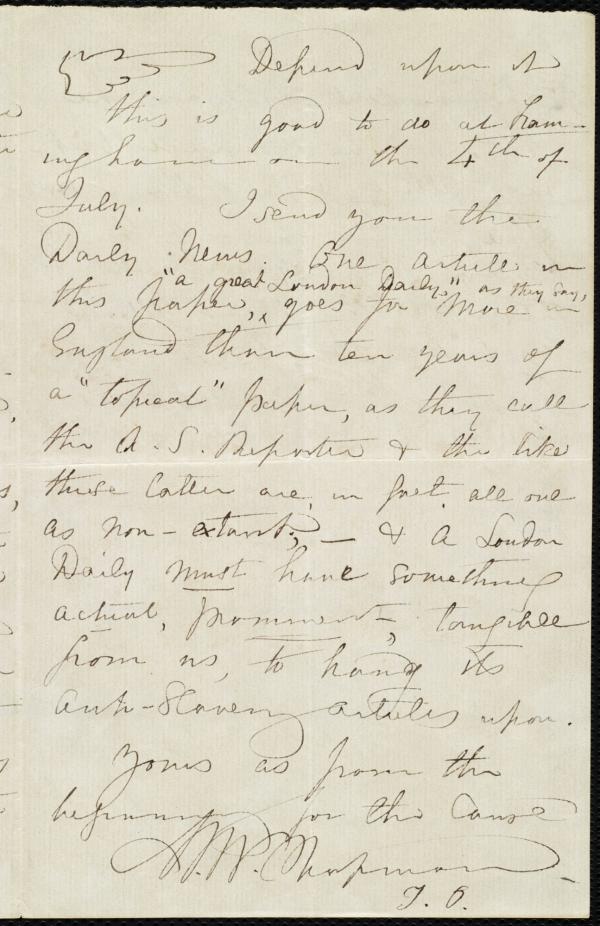 Depend upon it
this is good to do at Fram-
ingham on the 4th of
July. I send you the
Daily News. One article in
this paper, "a great London Daily," as they say,
goes for more in
England than ten years of
a "topical" paper, as they call
the A. S. Reporter & the like
these latter are, in fact, all one
as non-extant; — & a London
Daily must have something
actual, prominent, tangible
from us, to hang its
Anti-Slavery articles upon.
Yours as from the
beginning for the Cause
M. W. Chapman
T. O.